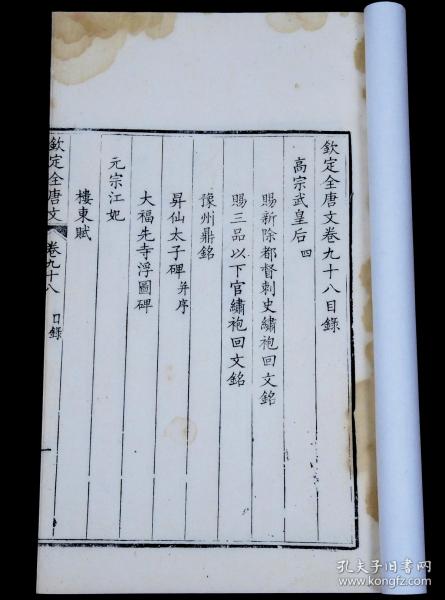 欽定全唐文卷九十八目錄
高宗武皇后 四
賜新除都督刺史繡袍回文銘
賜三品以下官繡袍回文銘
豫州鼎銘
昇仙太子碑 并序
大福先寺浮圖碑
元宗江妃
樓東賦
欽定全唐文 卷九十八 目錄 一
孔夫子旧书网
www.kongfz.com